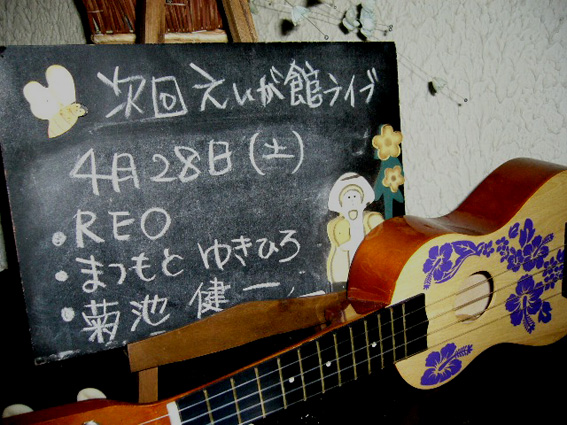 次回えいが館ライブ
4月28日(土)
・REO
・まつもと ゆきひろ
・菊池 健一